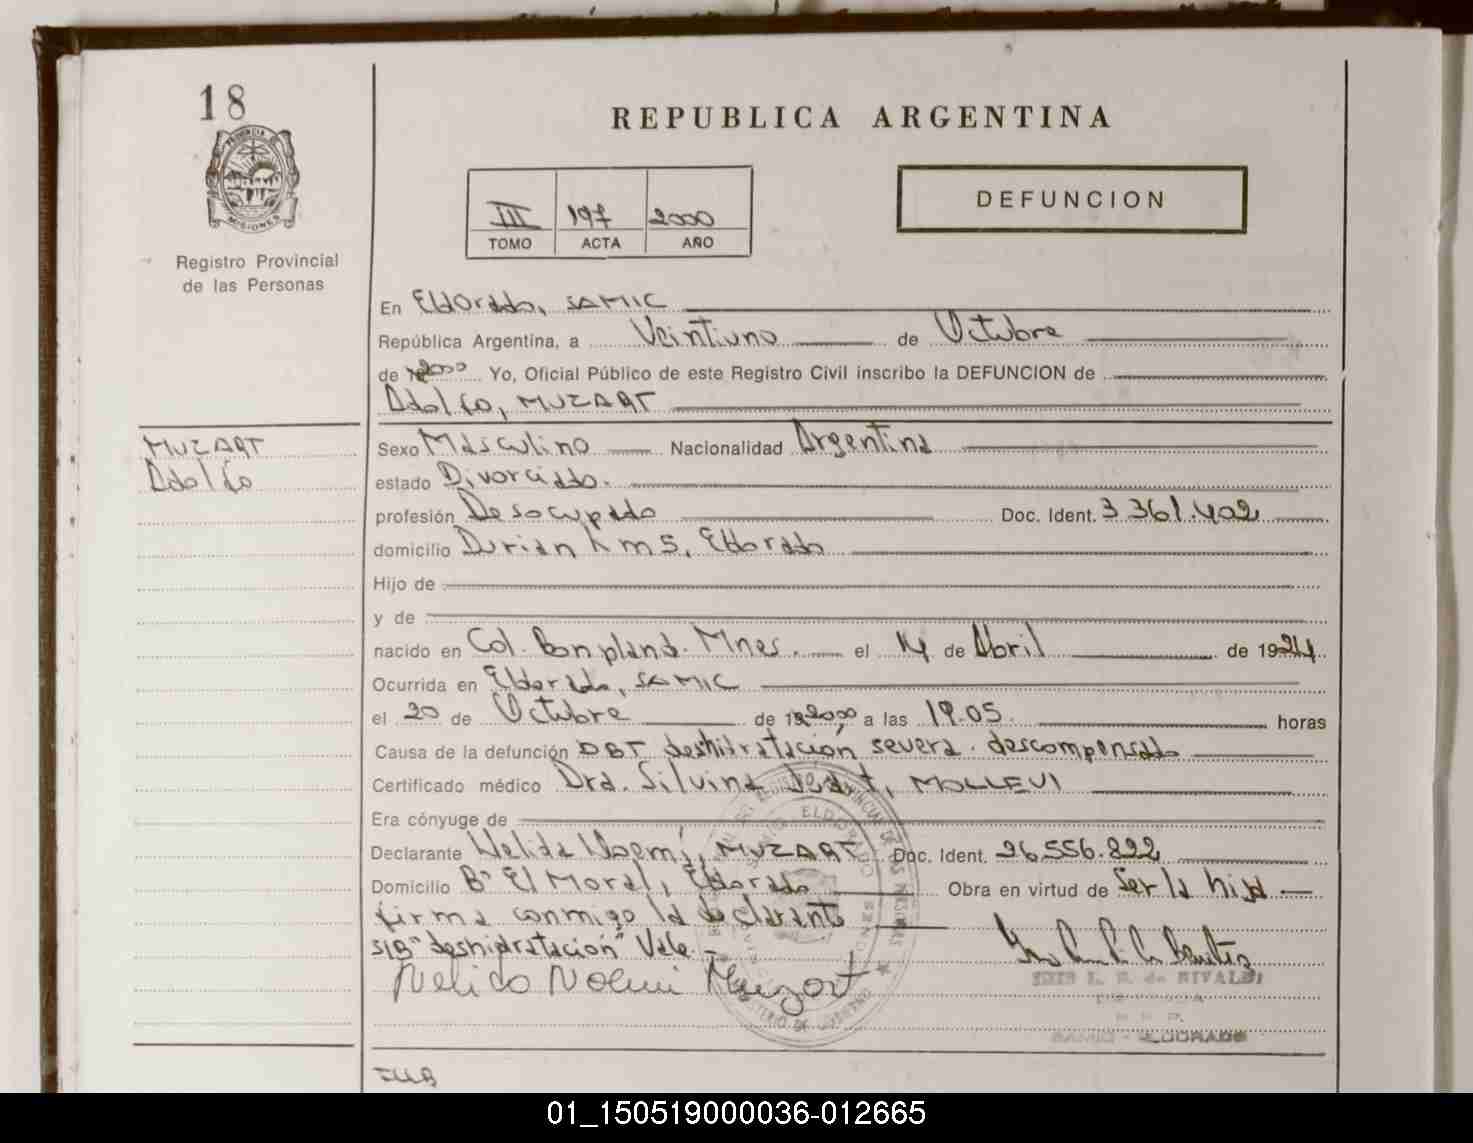 18
PROVINCIA DE
MISIONES
Registro Provincial
de las Personas
REPUBLICA ARGENTINA
III 197 2000
TOMO ACTA AÑO
DEFUNCION
En Eldorado, SAMIC
República Argentina, a Veintiuno de Octubre
de 2000 Yo, Oficial Público de este Registro Civil inscribo la DEFUNCION de
Adolfo, MUZART
MUZART
Adolfo
Sexo Masculino Nacionalidad Argentina
estado Divorciado.
profesión Desocupado Doc. Ident. 3.361.402
domicilio Durian Km 5, Eldorado
Hijo de
y de
nacido en Col. Bonpland. Mnes. el 14 de Abril de 1924
Ocurrida en Eldorado, SAMIC
el 20 de Octubre de 2000 a las 19.05. horas
Causa de la defunción DBT deshidratación severa. descompensado
Certificado médico Dra. Silvina MOLLEVI
Era cónyuge de
Declarante Nelida Noemí, MUZART Doc. Ident. 26.556.822
Domicilio B° El Moral, Eldorado Obra en virtud de Ser la hija
firma conmigo la declarante
S/B "deshidratación" Vale.-
Nelida Noemi Muzart
Benitez
de RIVALDI
SAMIC - ELDORADO
01_150519000036-012665